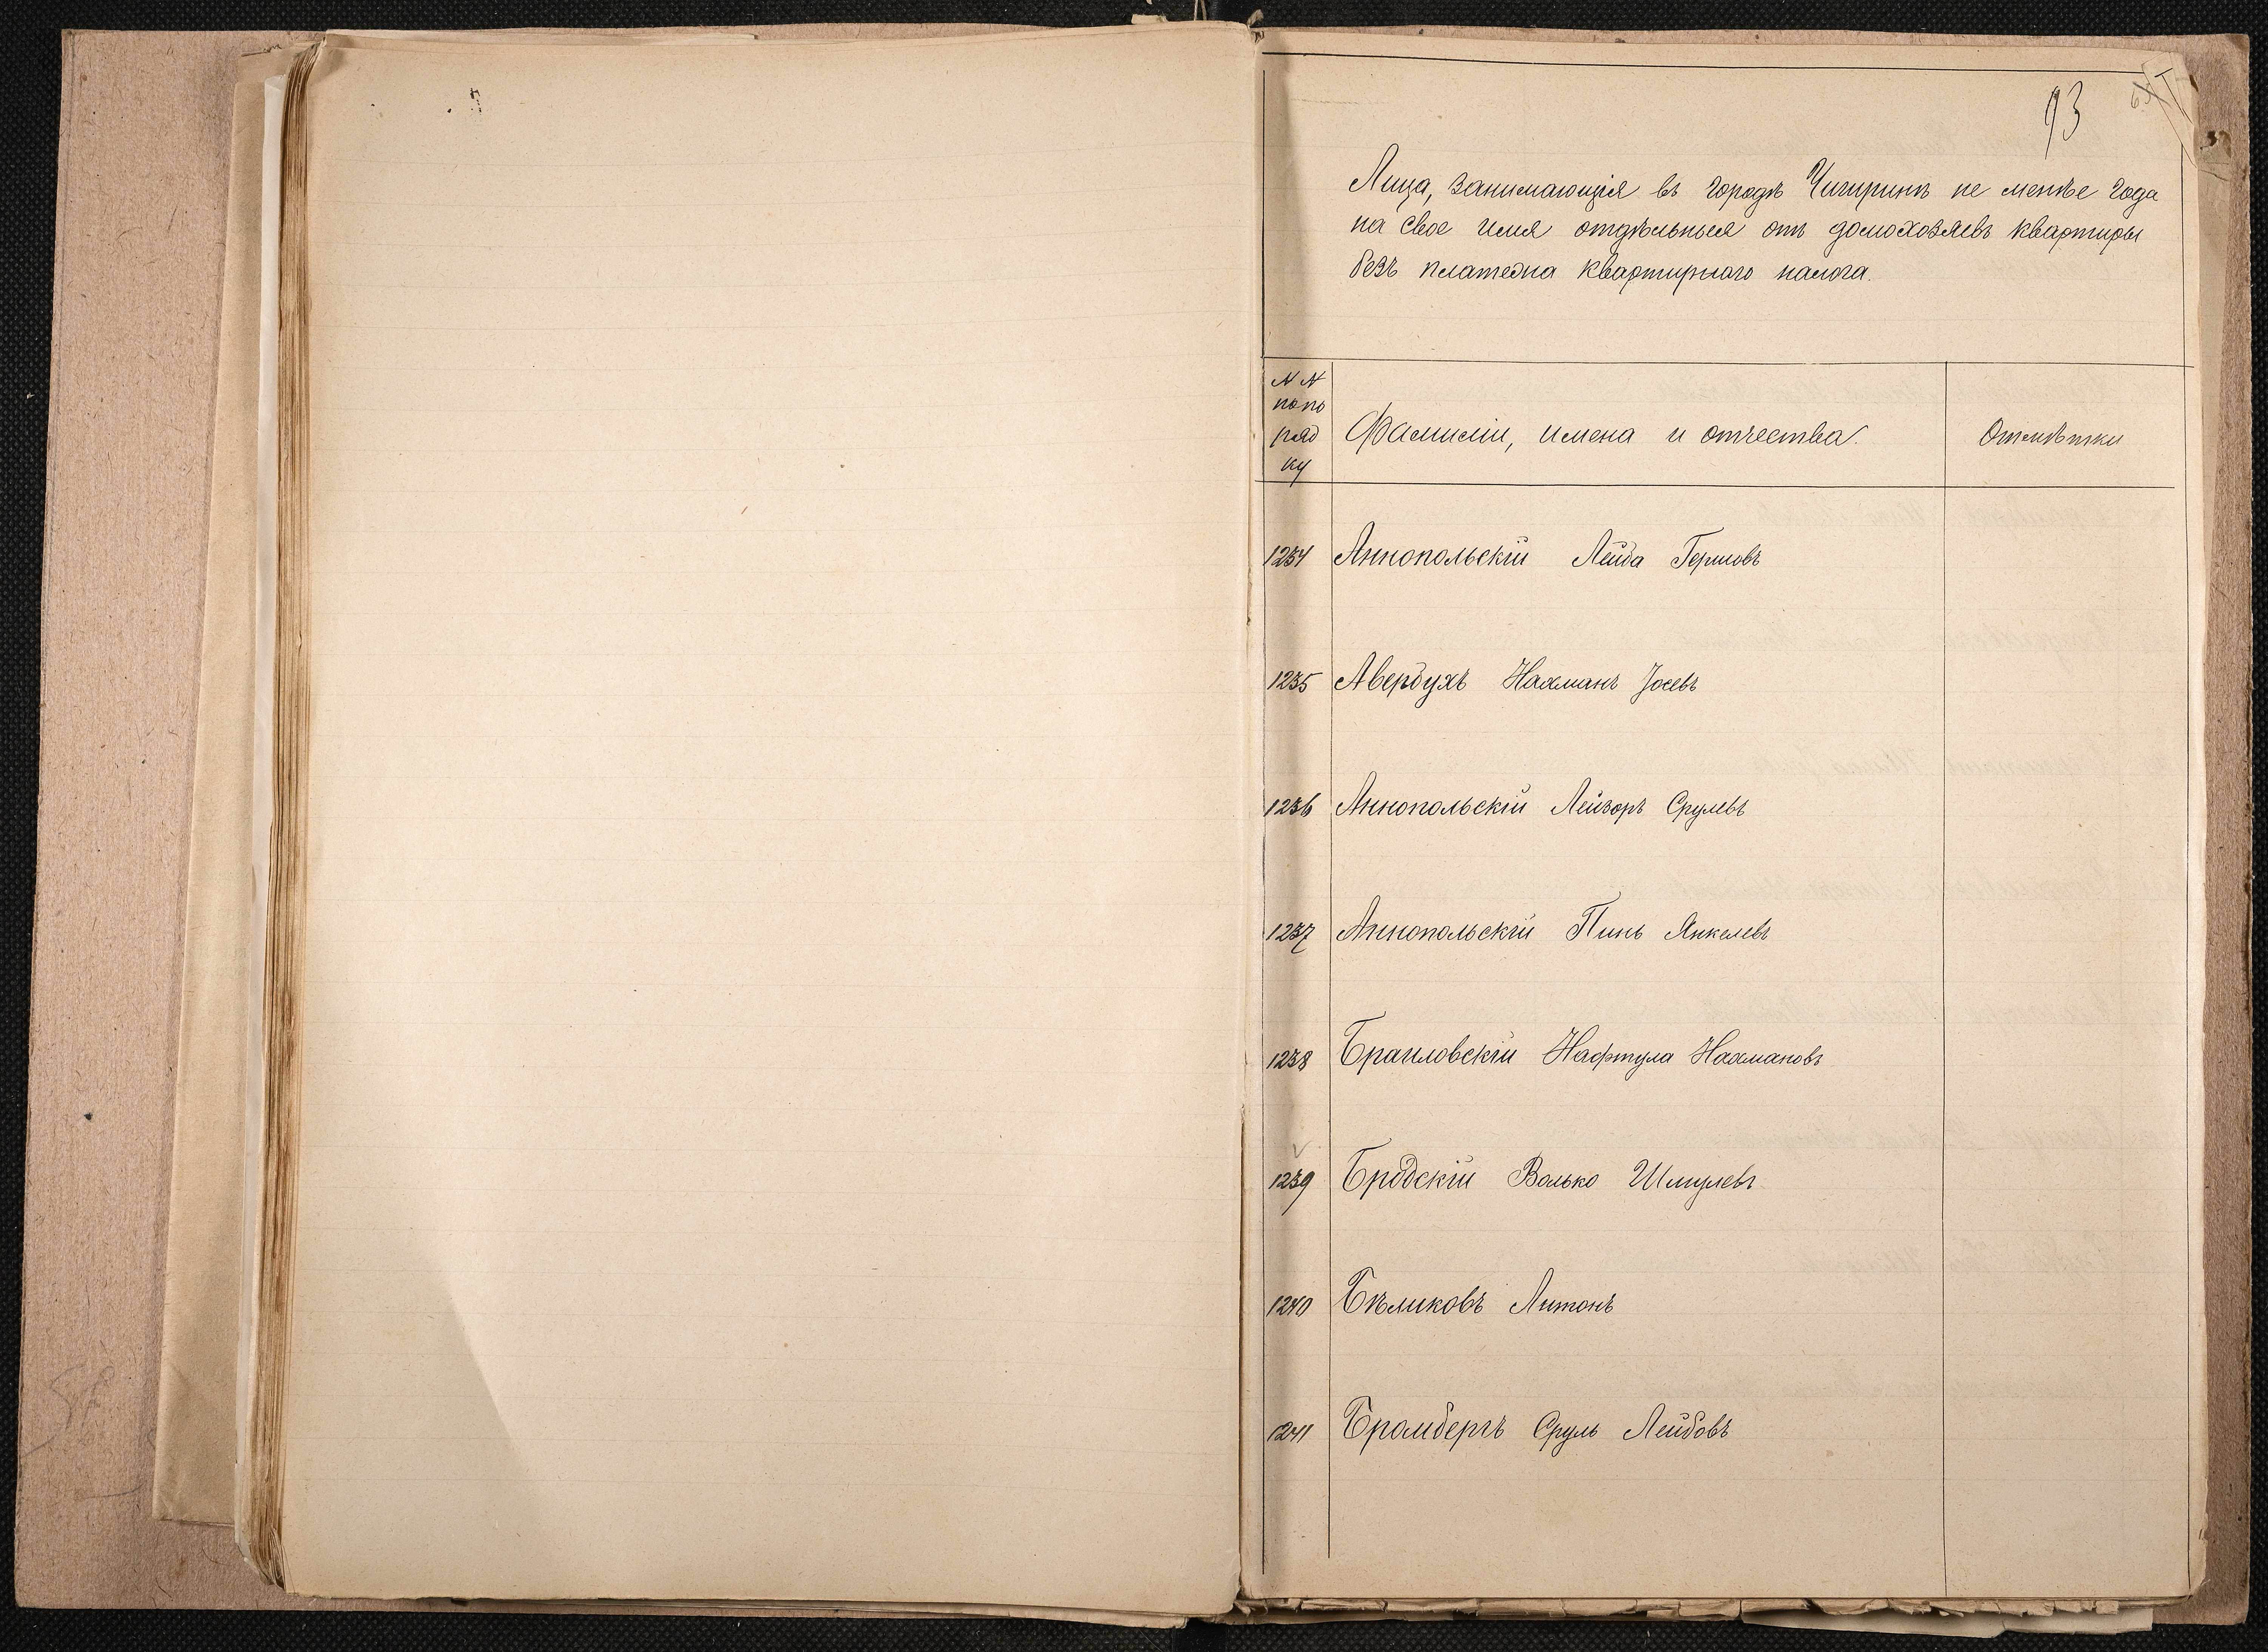 93
Лица, занимающія въ городѣ Чигиринѣ не менѣе года
на свое имя отдѣльныя отъ домохозяевъ квартиры
безъ платежа квартирнаго налога.
№ №
по по
ряд
ку
Фамиліи, имена и отчества.
Отмѣтки
1234 Аннопольскій Лейба Гершовъ
1235 Авербухъ Нахманъ Іосевъ
1236 Аннопольскій Лейзоръ Срулевъ
1237 Аннопольскій Пинь Янкелевъ
1238 Браиловскій Нафтула Нахмановъ
1239 Бродскій Волько Шмулевъ
1240 Бѣликовъ Антонъ
1241 Бромбергъ Сруль Лейбовъ